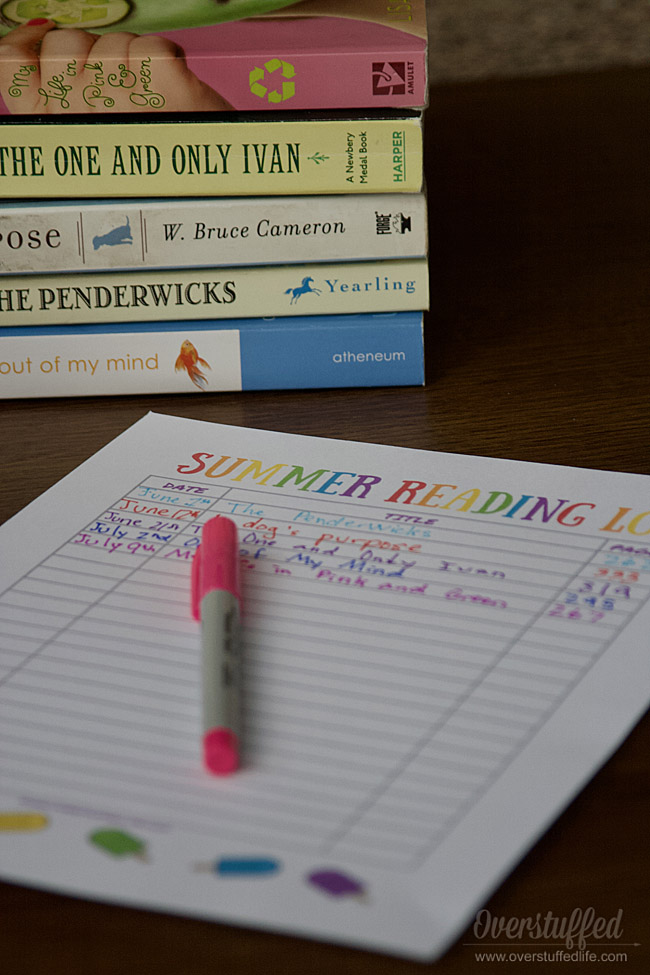 My Life in Pink & Green
AMULET
THE ONE AND ONLY IVAN
A Newbery Medal Book
HARPER
POSE
W. Bruce Cameron
FORGE
HE PENDERWICKS
Yearling
out of my mind
atheneum
SUMMER READING LO
DATE TITLE
June The Penderwicks
June dog's purpose
June One and Only Ivan 319
July 2nd of My Mind 295
July 9th in Pink and Green 267
Overstuffed
www.overstuffedlife.com